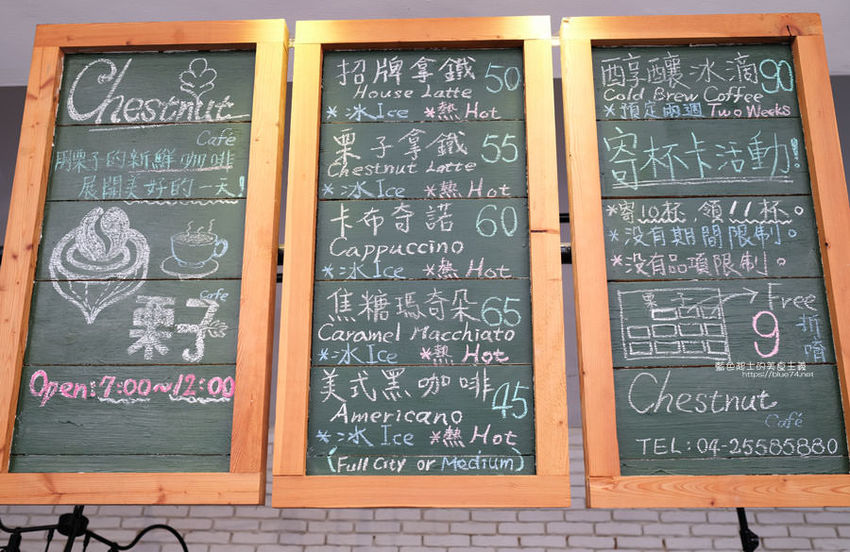 Chestnut
Café
用栗子的新鮮咖啡
展開美好的一天!
Cafe
栗子
Open: 7:00~12:00
招牌拿鐵 50
House Latte
*冰Ice *熱Hot
栗子拿鐵 55
Chestnut Latte
*冰Ice *熱Hot
卡布奇諾 60
Cappuccino
*冰Ice *熱Hot
焦糖瑪奇朵 65
Caramel Macchiato
*冰Ice *熱Hot
美式黑咖啡 45
Americano
*冰Ice *熱Hot
(Full City or Medium)
醇釀冰滴 90
Cold Brew Coffee
*預定兩週 Two Weeks
寄杯卡活動!
*寄10杯,領11杯。
*没有期間限制。
*没有品項限制。
栗子 Free
9 折唷
藍色起士的美食主義
https://blue74.net
Chestnut
Café
TEL: 04-25585880